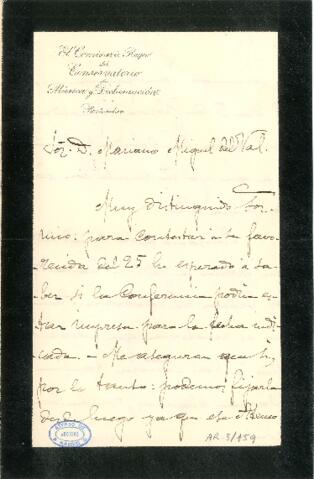 El Comisario Regio
del
Conservatorio
de
Música y Declamación
Particular
Sor. D. Mariano Miguel del Val.
Muy distinguido Sor.
mio: para contestar a la favo-
recida del 25 he esperado a sa-
ber si la Conferencia podria es-
tar impresa para la fecha indi-
cada. - Me aseguran que si,
por lo tanto: podemos fijarla
desde luego ya que ese Ateneo
AR-3/459